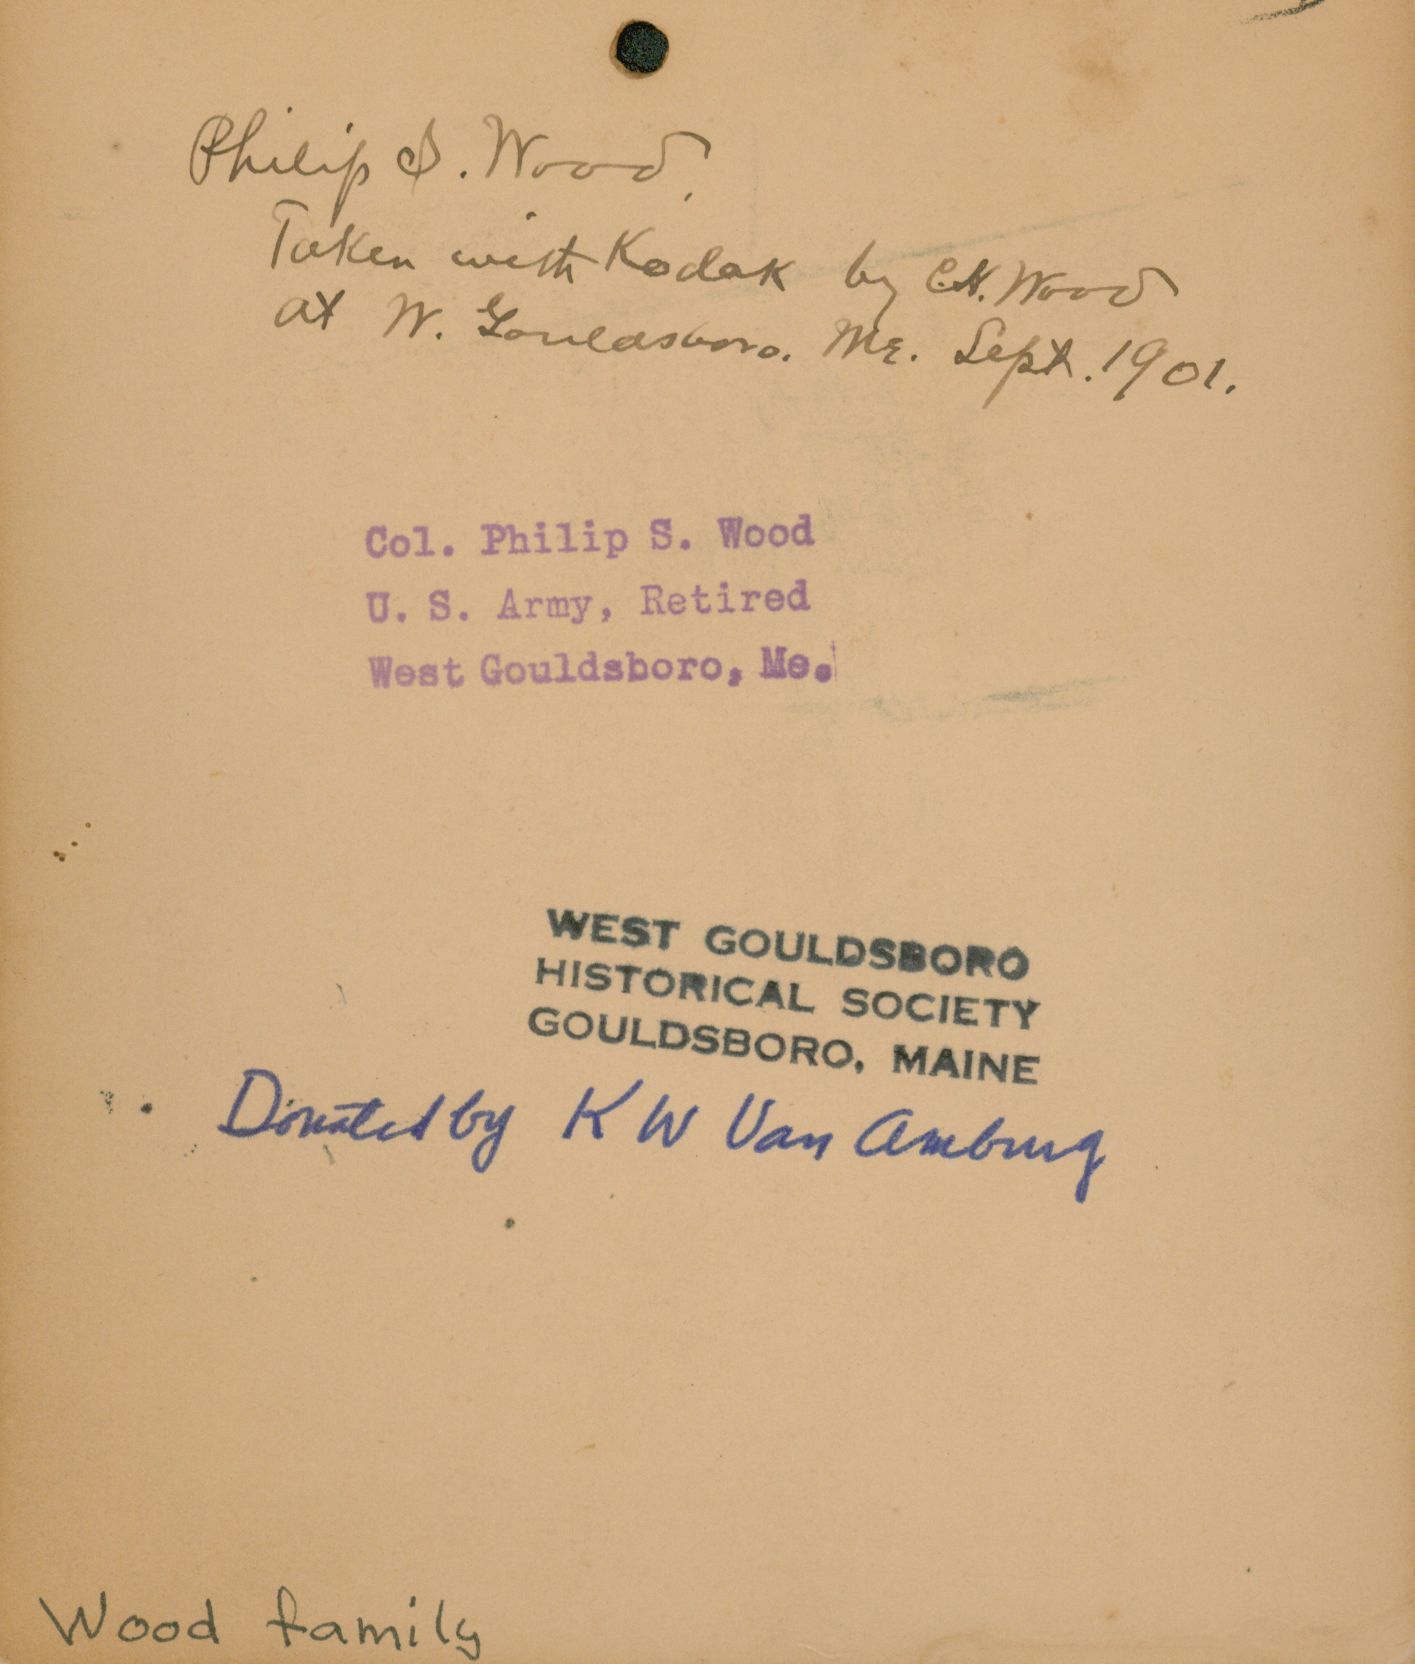 Philip S. Wood.
Taken with Kodak by C.H. Wood
at W. Gouldsboro. Me. Sept. 1901.
Col. Philip S. Wood
U. S. Army, Retired
West Gouldsboro, Me.
WEST GOULDSBORO
HISTORICAL SOCIETY
GOULDSBORO, MAINE
Donated by K W Van Amburg
Wood family